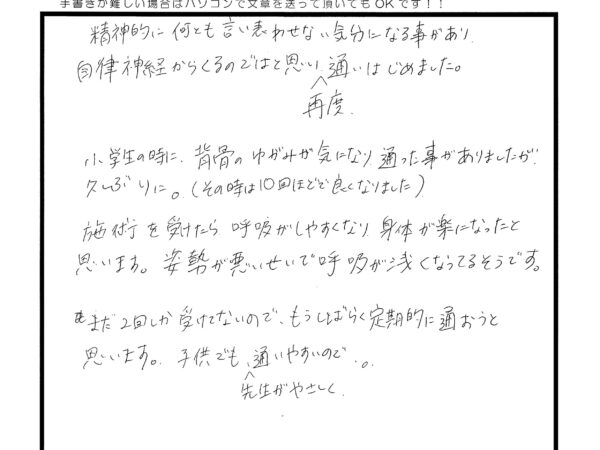 手書きが難しい場合はパソコンで文章を送って頂いてもOKです！！
精神的に何とも言い表わせない気分になる事があり、
自律神経からくるのではと思い、通いはじめました。
再度、
小学生の時に、背骨のゆがみが気になり通った事がありましたが、
久しぶりに。（その時は10回ほどで良くなりました）
施術を受けたら呼吸がしやすくなり身体が楽になったと
思います。姿勢が悪いせいで呼吸が浅くなってるそうです。
まだ2回しか受けてないので、もうしばらく定期的に通おうと
思います。子供でも、通いやすいので。。
先生がやさしく、